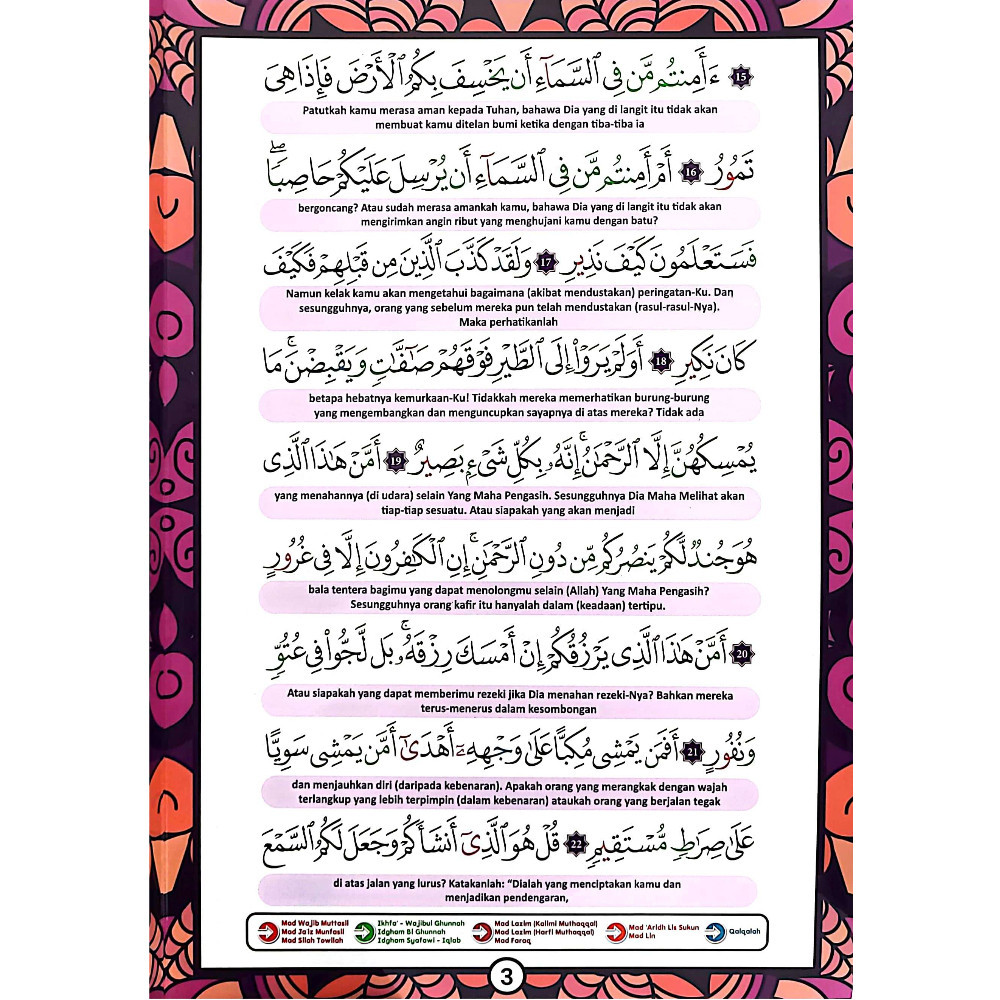 15 ءَأَمِنتُم مَّن فِى ٱلسَّمَآءِ أَن يَخْسِفَ بِكُمُ ٱلْأَرْضَ فَإِذَا هِىَ
Patutkah kamu merasa aman kepada Tuhan, bahawa Dia yang di langit itu tidak akan
membuat kamu ditelan bumi ketika dengan tiba-tiba ia
تَمُورُ 16 أَمْ أَمِنتُم مَّن فِى ٱلسَّمَآءِ أَن يُرْسِلَ عَلَيْكُمْ حَاصِبًا ۖ
bergoncang? Atau sudah merasa amankah kamu, bahawa Dia yang di langit itu tidak akan
mengirimkan angin ribut yang menghujani kamu dengan batu?
فَسَتَعْلَمُونَ كَيْفَ نَذِيرِ 17 وَلَقَدْ كَذَّبَ ٱلَّذِينَ مِن قَبْلِهِمْ فَكَيْفَ
Namun kelak kamu akan mengetahui bagaimana (akibat mendustakan) peringatan-Ku. Dan
sesungguhnya, orang yang sebelum mereka pun telah mendustakan (rasul-rasul-Nya).
Maka perhatikanlah
كَانَ نَكِيرِ 18 أَوَلَمْ يَرَوْا۟ إِلَى ٱلطَّيْرِ فَوْقَهُمْ صَـٰٓفَّـٰتٍ وَيَقْبِضْنَ ۚ مَا
betapa hebatnya kemurkaan-Ku! Tidakkah mereka memerhatikan burung-burung
yang mengembangkan dan menguncupkan sayapnya di atas mereka? Tidak ada
يُمْسِكُهُنَّ إِلَّا ٱلرَّحْمَـٰنُ ۚ إِنَّهُۥ بِكُلِّ شَىْءٍۭ بَصِيرٌ 19 أَمَّنْ هَـٰذَا ٱلَّذِى
yang menahannya (di udara) selain Yang Maha Pengasih. Sesungguhnya Dia Maha Melihat akan
tiap-tiap sesuatu. Atau siapakah yang akan menjadi
هُوَ جُندٌ لَّكُمْ يَنصُرُكُم مِّن دُونِ ٱلرَّحْمَـٰنِ ۚ إِنِ ٱلْكَـٰفِرُونَ إِلَّا فِى غُرُورٍ
bala tentera bagimu yang dapat menolongmu selain (Allah) Yang Maha Pengasih?
Sesungguhnya orang kafir itu hanyalah dalam (keadaan) tertipu.
20 أَمَّنْ هَـٰذَا ٱلَّذِى يَرْزُقُكُمْ إِنْ أَمْسَكَ رِزْقَهُۥ ۚ بَل لَّجُّوا۟ فِى عُتُوٍّ
Atau siapakah yang dapat memberimu rezeki jika Dia menahan rezeki-Nya? Bahkan mereka
terus-menerus dalam kesombongan
وَنُفُورٍ 21 أَفَمَن يَمْشِى مُكِبًّا عَلَىٰ وَجْهِهِۦٓ أَهْدَىٰٓ أَمَّن يَمْشِى سَوِيًّا
dan menjauhkan diri (daripada kebenaran). Apakah orang yang merangkak dengan wajah
terlangkup yang lebih terpimpin (dalam kebenaran) ataukah orang yang berjalan tegak
عَلَىٰ صِرَٰطٍ مُّسْتَقِيمٍ 22 قُلْ هُوَ ٱلَّذِىٓ أَنشَأَكُمْ وَجَعَلَ لَكُمُ ٱلسَّمْعَ
di atas jalan yang lurus? Katakanlah: “Dialah yang menciptakan kamu dan
menjadikan pendengaran,
Mad Wajib Muttasil
Mad Ja'iz Munfasil
Mad Silah Tawilah
Ikhfa' - Wajibul Ghunnah
Idgham Bi Ghunnah
Idgham Syafawi - Iqlab
Mad Lazim (Kalimi Muthaqqal)
Mad Lazim (Harfi Muthaqqal)
Mad Farq
Mad 'Aridh Lis Sukun
Mad Lin
Qalqalah
3